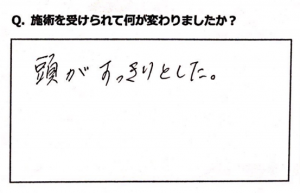 Q. 施術を受けられて何が変わりましたか？
頭がすっきりとした。